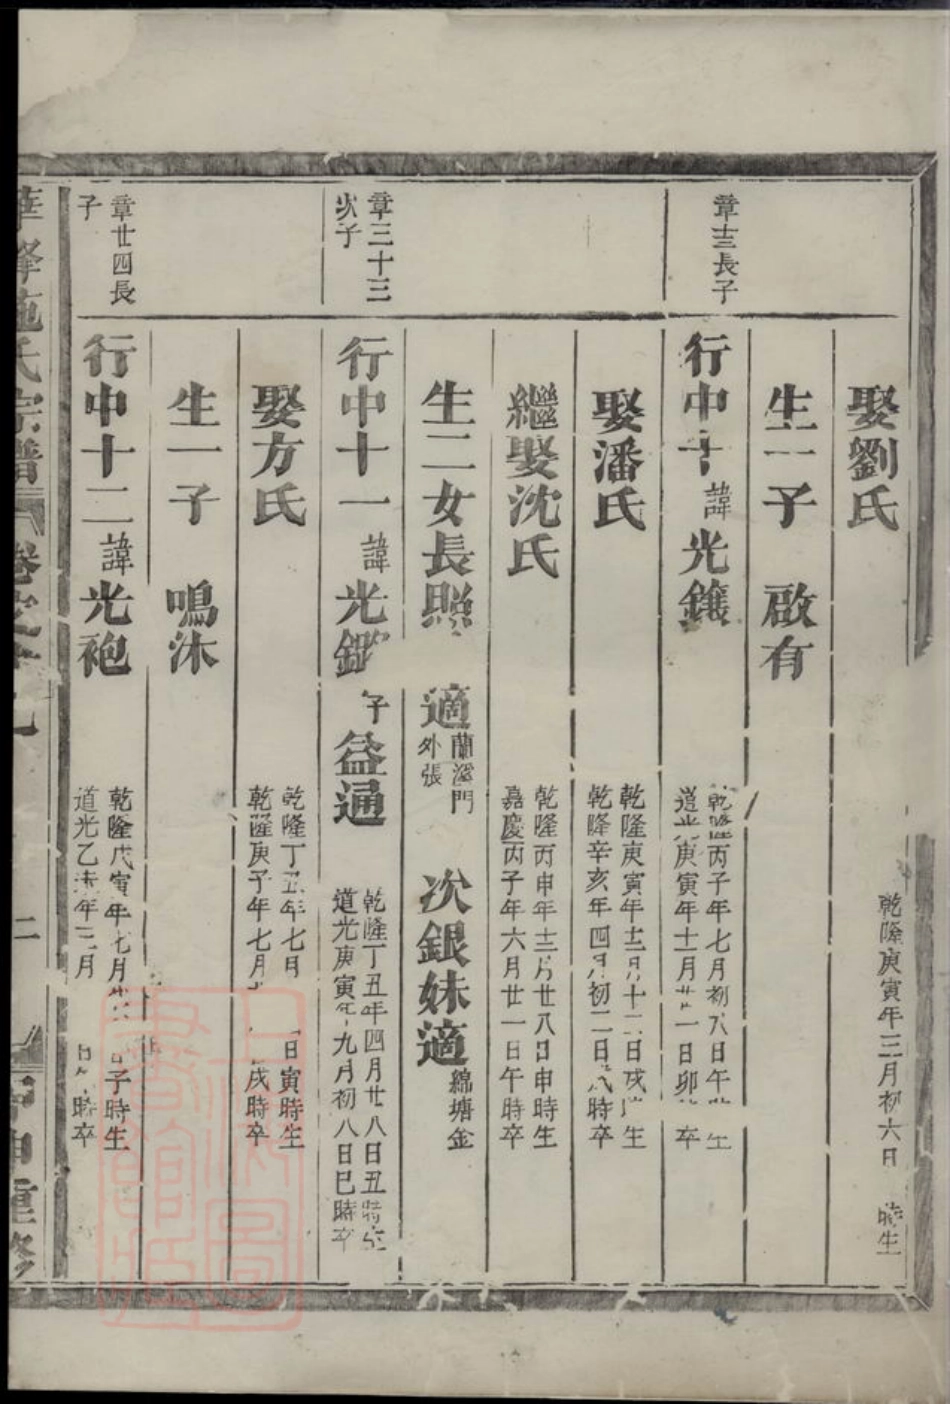 娶劉氏
乾隆庚寅年三月初六日 時生
生一子 啟有
章十三長子
行中十 諱光鑲
乾隆丙子年七月初六日午時生
道光庚寅年十一月廿一日卯 卒
娶潘氏
乾隆庚寅年十二月十二日戌 生
乾隆辛亥年四月初二日戌時卒
繼娶沈氏
乾隆丙申年十二月廿八日申時生
嘉慶丙子年六月廿一日午時卒
生二女長照 適蘭溪門外張 次銀妹適綿塘金
章三十三次子
行中十一諱光鑼 子益通
乾隆丁丑年四月廿八日丑時生
道光庚寅年九月初八日巳時卒
娶方氏
乾隆丁丑年七月 日寅時生
乾隆庚子年七月 戌時卒
生一子 鳴沐
章廿四長子
行中十二諱光袍
乾隆戊寅年七月 日子時生
道光乙未年三月 日 時卒
華峰施氏宗譜 卷之 二 甲申重修